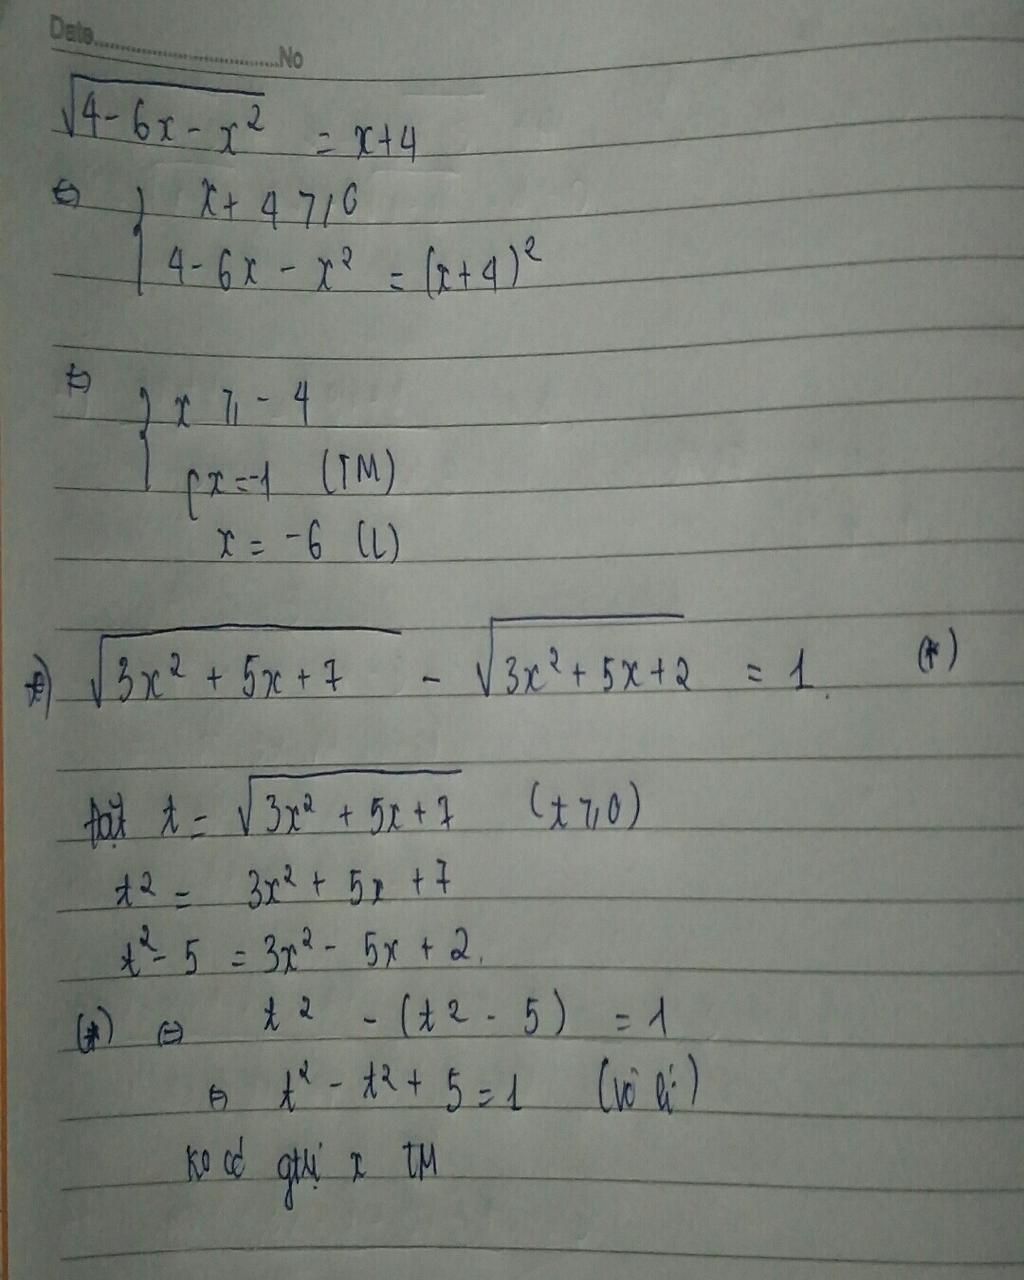 Date No
√4 - 6x - x² = x+4
⇔ { x + 4 ⩾ 0
4 - 6x - x² = (x+4)²
⇔ { x ⩾ - 4
[ x = -1 (TM)
x = -6 (L)
*) √3x² + 5x + 7 - √3x² + 5x + 2 = 1. (*)
Đặt t = √3x² + 5x + 7 (t ⩾ 0)
t² = 3x² + 5x + 7
t² - 5 = 3x² - 5x + 2.
(*) ⇔ t² - (t² - 5) = 1
⇔ t² - t² + 5 = 1 (vô lí)
Ko có gtrị x TM